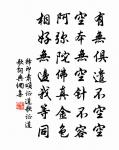 有無俱遣不空空
空本無空針不容
阿弥陀佛真金色
相好無邊我等同
釋印肅頌證道歌證道
歌詞典佩喜